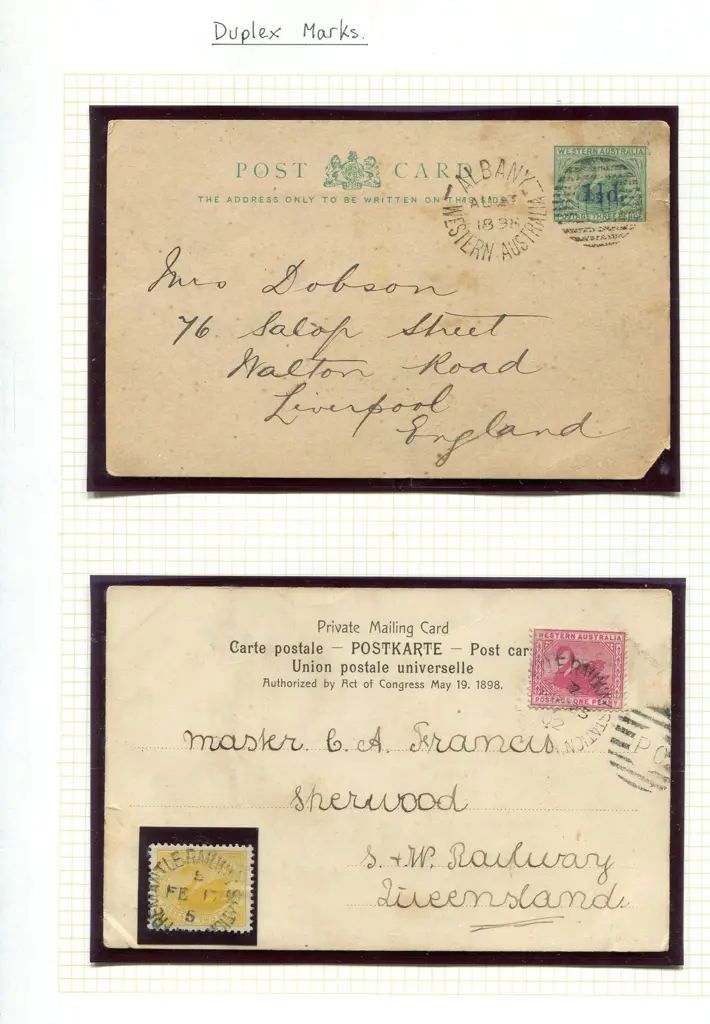 Duplex Marks.
POST CARD
THE ADDRESS ONLY TO BE WRITTEN ON THIS SIDE
ALBANY
1898
WESTERN AUSTRALIA
WESTERN AUSTRALIA
1½d.
POSTAGE THREE PENCE
Mrs Dobson
76 Salop Street
Walton Road
Liverpool
England
Private Mailing Card
Carte postale – POSTKARTE – Post card
Union postale universelle
Authorized by Act of Congress May 19. 1898.
WESTERN AUSTRALIA
POSTAGE ONE PENNY
RAILWAY STATION
PO
Master C. A. Francis
Sherwood
S. + W. Railway
Queensland.
FREMANTLE RAILWAY STATION
FE 17
5